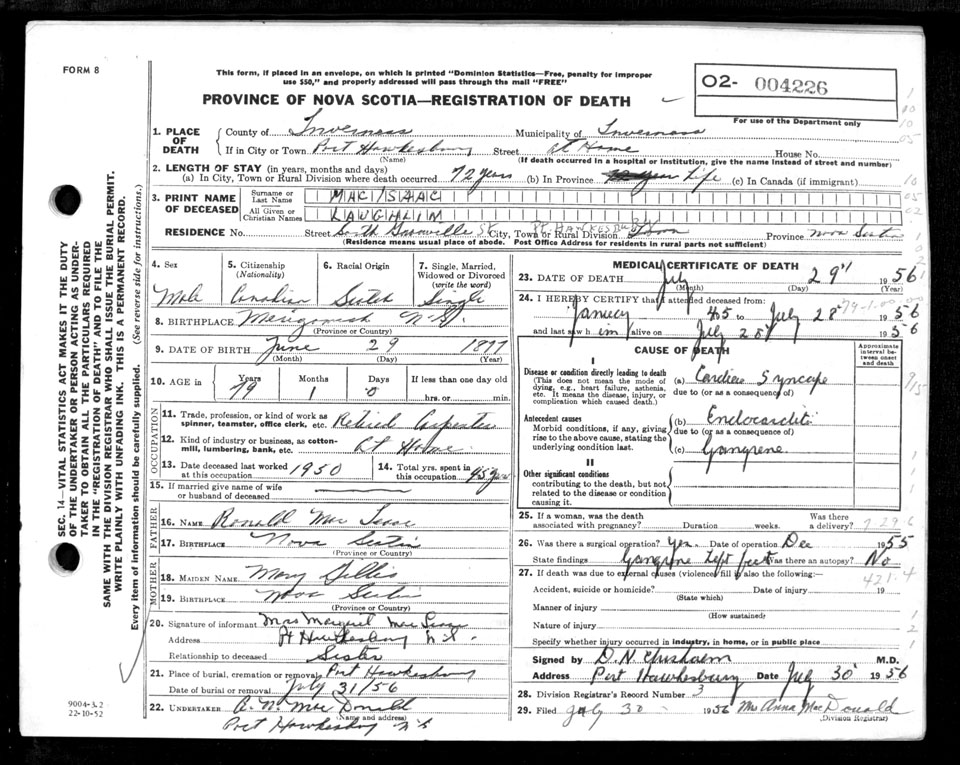 FORM 8
This form, if placed in an envelope, on which is printed "Dominion Statistics—Free, penalty for improper
use $50," and properly addressed will pass through the mail "FREE"
PROVINCE OF NOVA SCOTIA—REGISTRATION OF DEATH
O2- 004226
For use of the Department only
1. PLACE OF DEATH
County of Inverness Municipality of Inverness
If in City or Town Port Hawkesbury Street At Home House No.
(Name) (If death occurred in a hospital or institution, give the name instead of street and number)
2. LENGTH OF STAY (in years, months and days)
(a) In City, Town or Rural Division where death occurred 72 years (b) In Province Life (c) In Canada (if immigrant)
3. PRINT NAME OF DECEASED
Surname or Last Name MACISAAC
All Given or Christian Names LAUGHLIN
RESIDENCE No. Street South Granville St City, Town or Rural Division Pt. HAWKESBURY Town Province Nova Scotia
(Residence means usual place of abode. Post Office Address for residents in rural parts not sufficient)
4. Sex
Male
5. Citizenship (Nationality)
Canadian
6. Racial Origin
Scotch
7. Single, Married, Widowed or Divorced (write the word)
Single
8. BIRTHPLACE Merigomish N.S.
(Province or Country)
9. DATE OF BIRTH June 29 1877
(Month) (Day) (Year)
10. AGE in Years Months Days If less than one day old
79 1 0 hrs. or min.
OCCUPATION
11. Trade, profession, or kind of work as spinner, teamster, office clerk, etc. Retired Carpenter
12. Kind of industry or business, as cotton-mill, lumbering, bank, etc. At Home
13. Date deceased last worked at this occupation 1950
14. Total yrs. spent in this occupation 45 yrs
15. If married give name of wife or husband of deceased
FATHER
16. NAME Ronald Mac Isaac
17. BIRTHPLACE Nova Scotia
(Province or Country)
MOTHER
18. MAIDEN NAME Mary Gillis
19. BIRTHPLACE Nova Scotia
(Province or Country)
20. Signature of informant Mrs Margaret Mac Isaac
Address Pt Hawkesbury N.S.
Relationship to deceased Sister
21. Place of burial, cremation or removal Port Hawkesbury
Date of burial or removal July 31/56
22. UNDERTAKER A. N. Mac Donald
(Name and address)
Port Hawkesbury N S
MEDICAL CERTIFICATE OF DEATH
23. DATE OF DEATH July 29th 1956
(Month) (Day) (Year)
24. I HEREBY CERTIFY that I attended deceased from
January 1945 to July 28 1956
and last saw him alive on July 28 1956
CAUSE OF DEATH
Approximate interval between onset and death
I
Disease or condition directly leading to death
(This does not mean the mode of dying, e.g., heart failure, asthenia, etc. It means the disease, injury, or complication which caused death.)
(a) Cardiac Syncope
due to (or as a consequence of)
Antecedent causes
Morbid conditions, if any, giving rise to the above cause, stating the underlying condition last.
(b) Endocarditis
due to (or as a consequence of)
(c) Gangrene
II
Other significant conditions
contributing to the death, but not related to the disease or condition causing it.
25. If a woman, was the death associated with pregnancy? Duration weeks. Was there a delivery?
26. Was there a surgical operation? Yes. Date of operation Dec 1955
State findings Gangrene Left foot Was there an autopsy? No
27. If death was due to external causes (violence) fill in also the following:—
421.4
Accident, suicide or homicide? Date of injury 19
(State which)
Manner of injury
(How sustained)
Nature of injury
Specify whether injury occurred in industry, in home, or in public place
Signed by D. N. Chisholm M.D.
Address Port Hawkesbury Date July 30 1956
28. Division Registrar's Record Number 3
29. Filed July 30 1956 Mrs Anna Mac Donald
(Division Registrar)
SEC. 14—VITAL STATISTICS ACT MAKES IT THE DUTY
OF THE UNDERTAKER OR PERSON ACTING AS UNDER-
TAKER TO OBTAIN ALL THE PARTICULARS REQUIRED
IN THE "REGISTRATION OF DEATH" AND TO FILE THE
SAME WITH THE DIVISION REGISTRAR WHO SHALL ISSUE THE BURIAL PERMIT.
WRITE PLAINLY WITH UNFADING INK. THIS IS A PERMANENT RECORD.
Every item of information should be carefully supplied. (See reverse side for instructions.)
9004-3.2
22-10-52